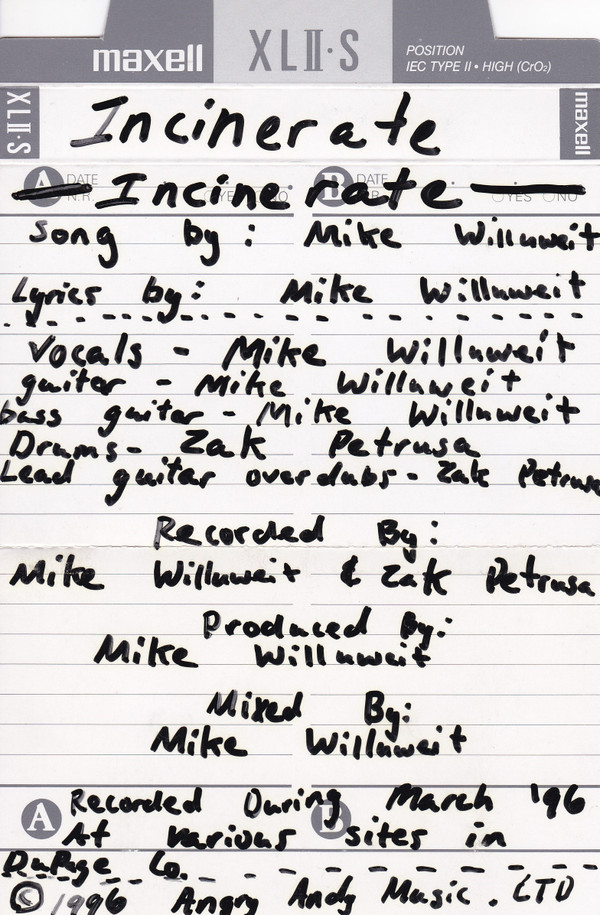 maxell XLII·S POSITION
IEC TYPE II • HIGH (CrO₂)
XLII·S Incinerate maxell
A DATE B DATE
N.R. YES NO N.R. YES NO
Incinerate
Song by: Mike Willuweit
Lyrics by: Mike Willuweit
Vocals - Mike Willuweit
guitar - Mike Willuweit
bass guitar - Mike Willuweit
Drums - Zak Petrusa
Lead guitar overdubs - Zak Petrusa
Recorded By:
Mike Willuweit & Zak Petrusa
Produced By:
Mike Willuweit
Mixed By:
Mike Willuweit
A Recorded During March '96
B
At various sites in
DuPage Co.
© 1996 Angry Andy Music. LTD